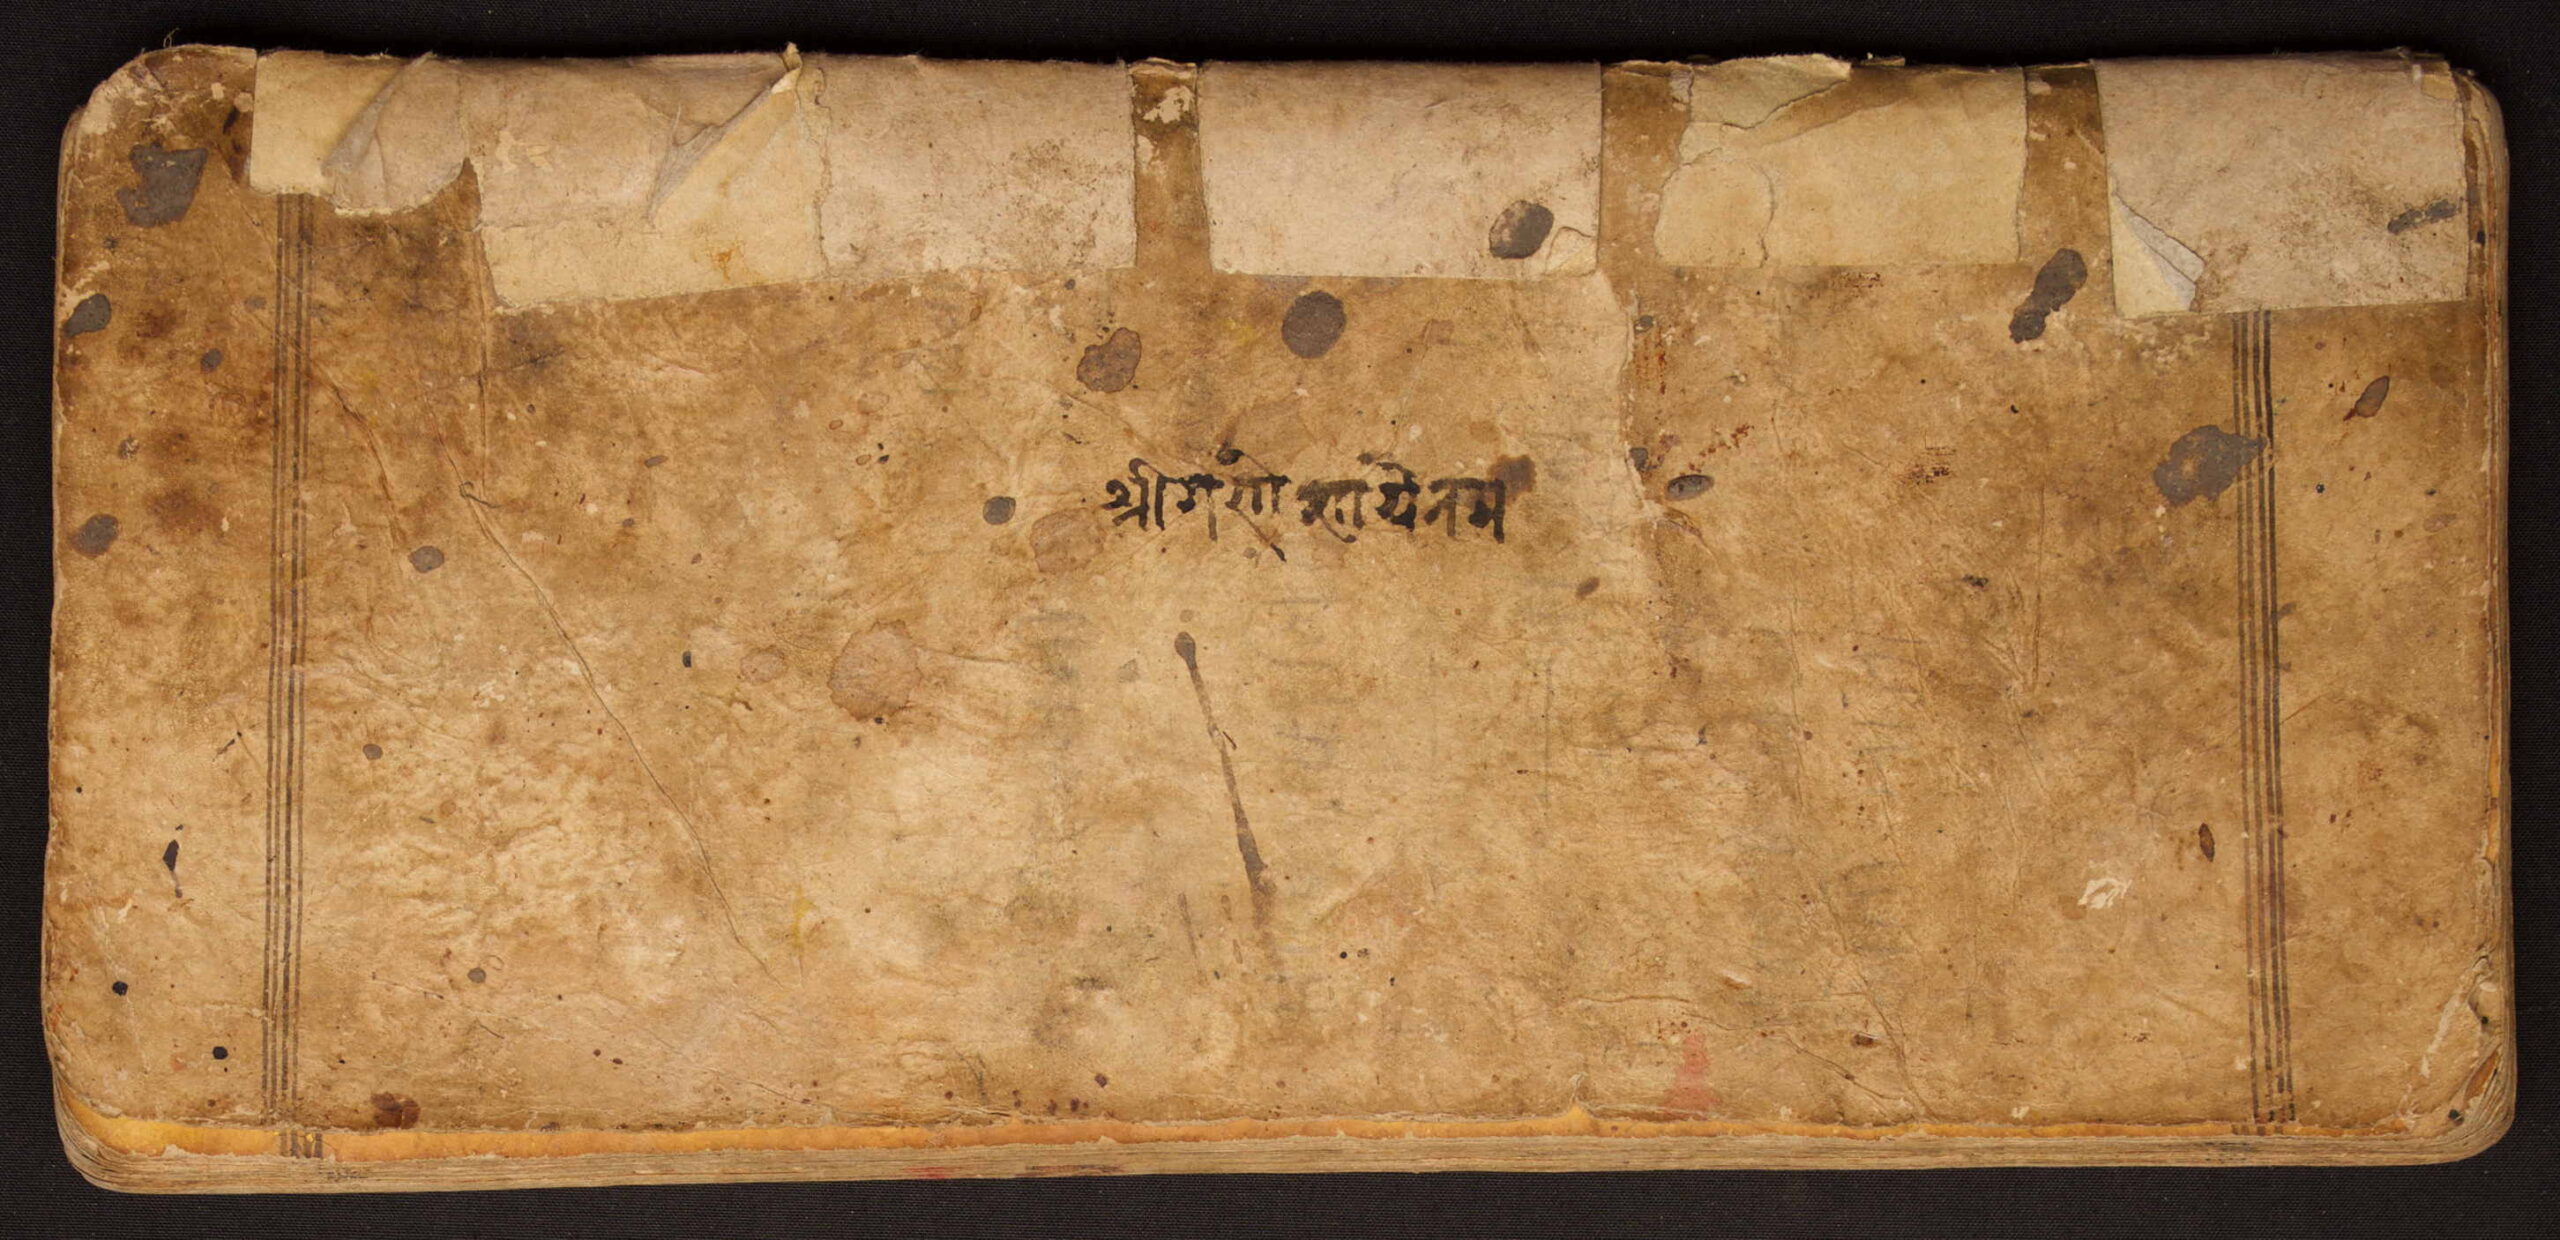 श्रीगणेशायेनम